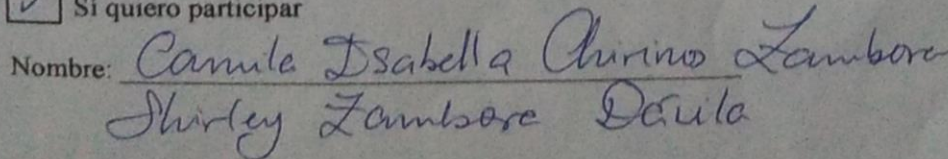 Si quiero participar
Nombre: Camila Isabella Chirinos Zambora
Shirley Zambora Dávila